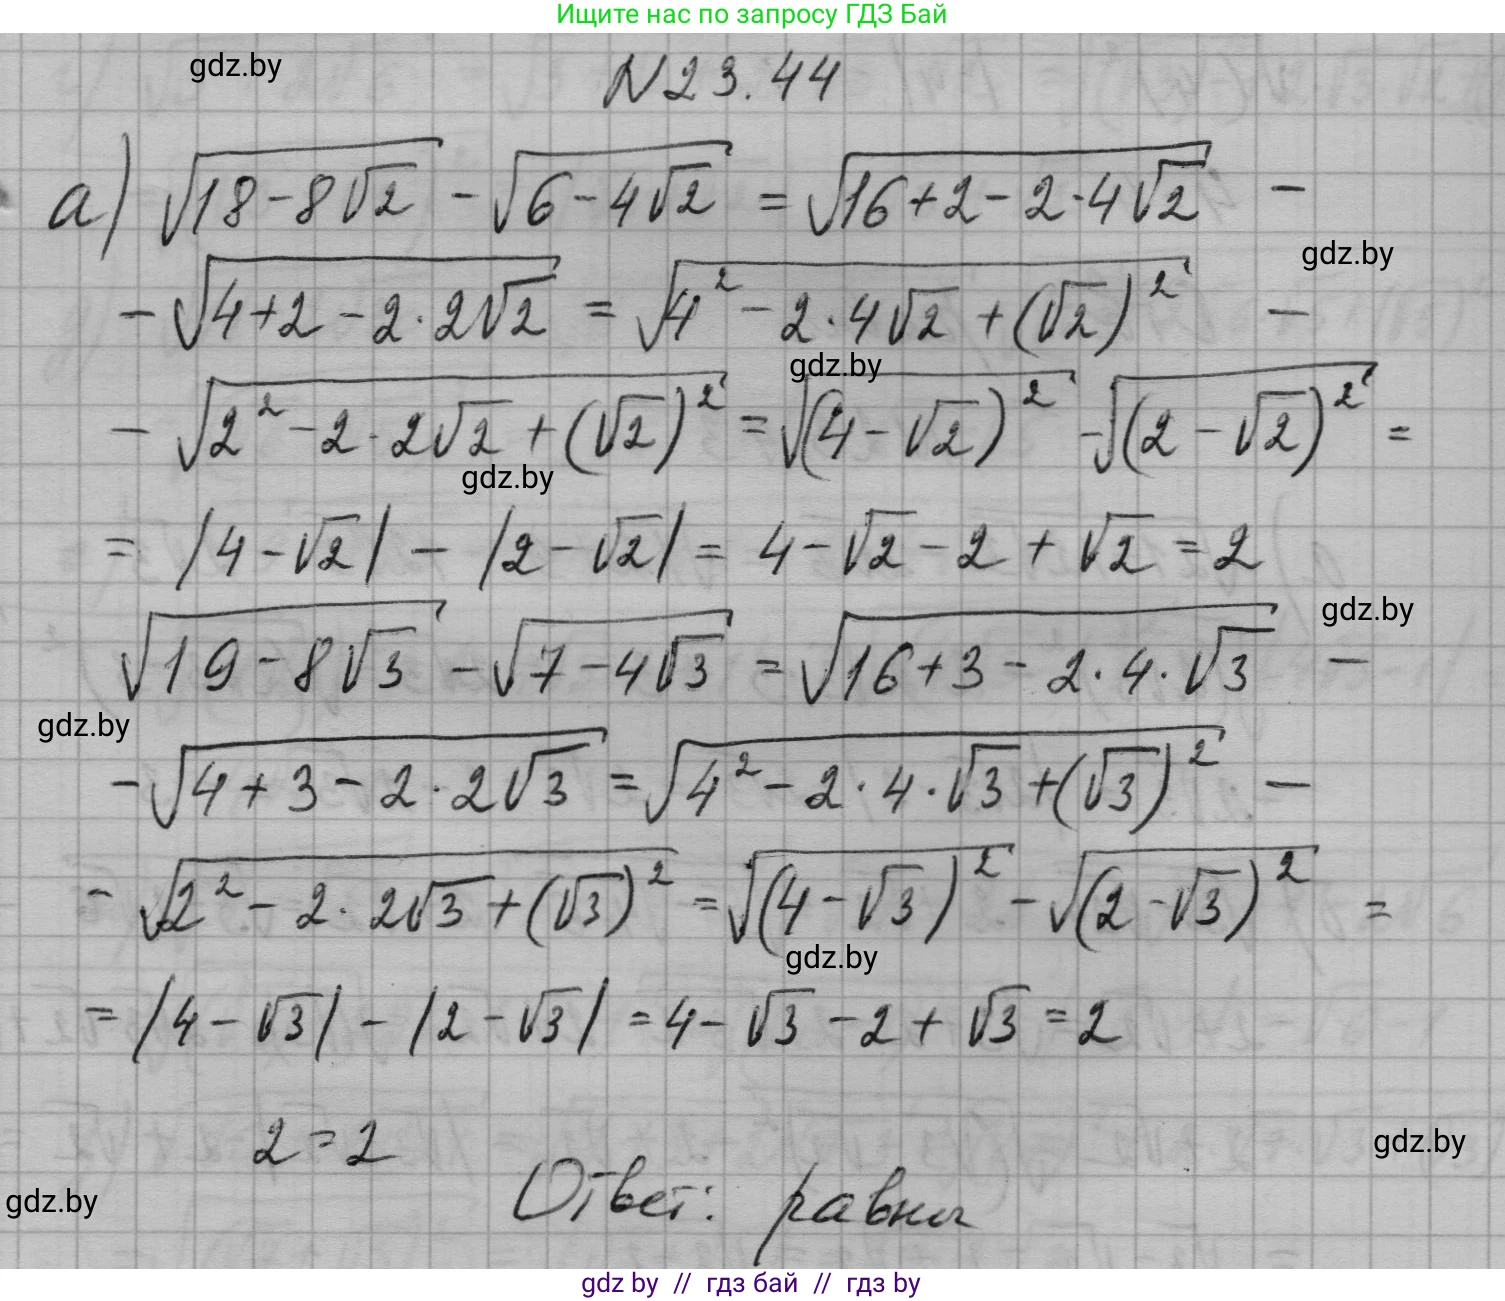 Ищите нас по запросу ГДЗ Бай
gdz.by
N23.44
а) √(18-8√2) - √(6-4√2) = √(16+2-2·4√2) -
gdz.by
- √(4+2-2·2√2) = √(4²-2·4√2+(√2)²) -
gdz.by
- √(2²-2·2√2+(√2)²) = √((4-√2)²) - √((2-√2)²) =
gdz.by
= |4-√2| - |2-√2| = 4-√2-2+√2 = 2
gdz.by
√(19-8√3) - √(7-4√3) = √(16+3-2·4·√3) -
gdz.by
- √(4+3-2·2√3) = √(4²-2·4·√3+(√3)²) -
- √(2²-2·2√3+(√3)²) = √((4-√3)²) - √((2-√3)²) =
gdz.by
= |4-√3| - |2-√3| = 4-√3-2+√3 = 2
2=2
gdz.by
Ответ: равны
gdz.by
gdz by // гдз бай // гдз by